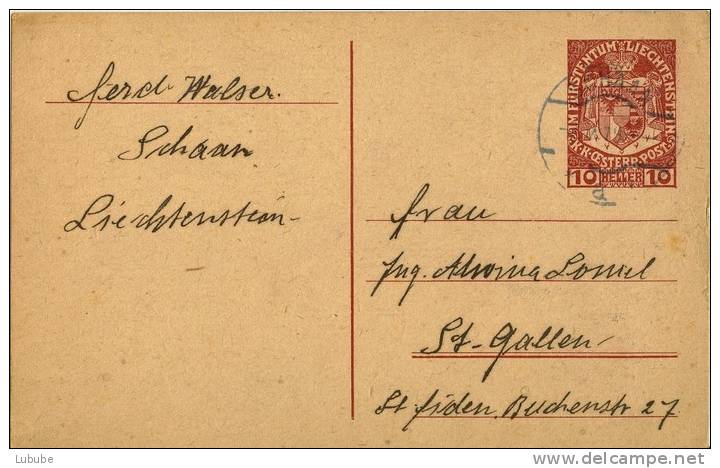 Ferd. Walser.
Schaan
Liechtenstein
IM FÜRSTENTUM LIECHTENSTEIN
K.K. OESTERR. POST.
10 HELLER 10
Frau
Ing. Alwina
St. Gallen
St. Fiden, Buchenstr 27.
Lubube
delcampe.net